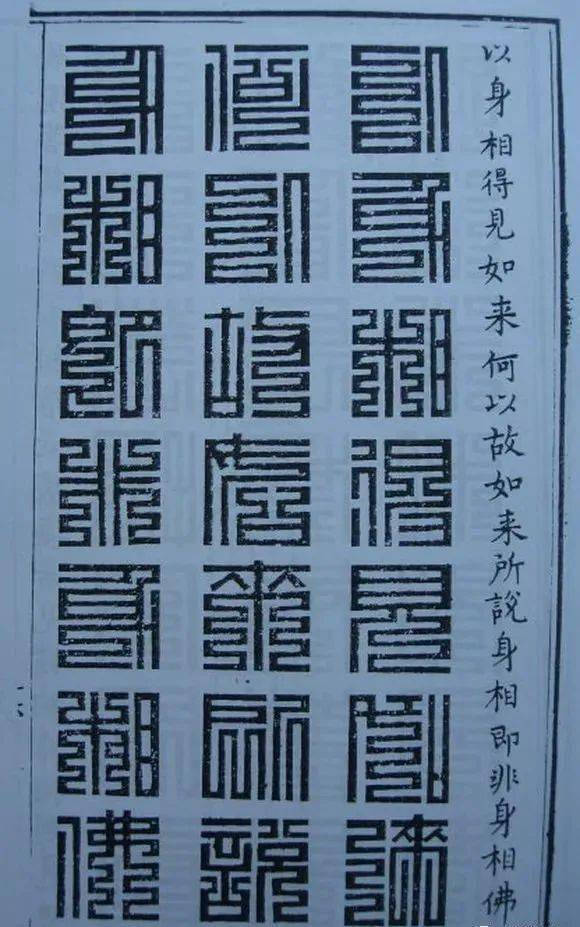 以身相得見如来何以故如来所說身相即非身相佛
以身相得見如來
何以故如來所說
身相即非身相佛